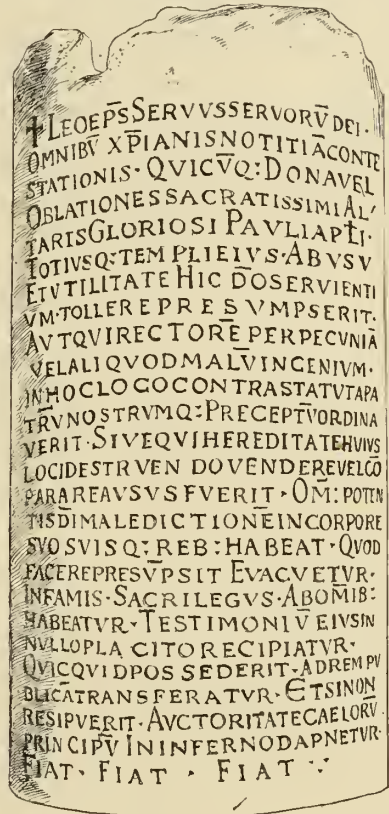 ✝LEOEP̅S̅SERVVSSERVORV̅ DEI·
OMNIBV̅ XP̅IANISNOTITIA̅CONTE
STATIONIS·QVICV̅Q:DONAVEL
OBLATIONESSACRATISSIMIAL'
TARISGLORIOSI PAVLIAPŁI·
TOTIVSQ:TEMPLIEIVS·ABVSV
ETVTILITATE HIC D̅OSERVIENTI
VM·TOLLEREPRESVMPSERIT·
AVTQVIRECTORE̅PERPECVNIA̅
VELALIQVODMALV̅INGENIVM·
INHOCLOCOCONTRASTATVTAPA
TRV̅NOSTRVMQ:PRECEPTV̅ORDINA
VERIT·SIVEQVIHEREDITATEHVIVS
LOCIDESTRVENDOVENDEREVELCO̅
PARAREAVSVSFVERIT·OM̅:POTEN
TISD̅IMALEDICTIONE̅INCORPORE
SVOSVISQ:REB:HABEAT·QVOD
FACEREPRESV̅PSIT EVACVETVR·
INFAMIS·SACRILEGVS·ABOM̅IB:
HABEATVR·TESTIMONIV̅EIVSIN
NVLLOPLACITORECIPIATVR·
QVICQVIDPOSSEDERIT·ADREMPV
BLICA̅TRANSFERATVR·ETSINON
RESIPVERIT·AVCTORITATECAELORV̅
PRINCIPV̅ ININFERNODAPNETVR·
FIAT· FIAT · FIAT ∵